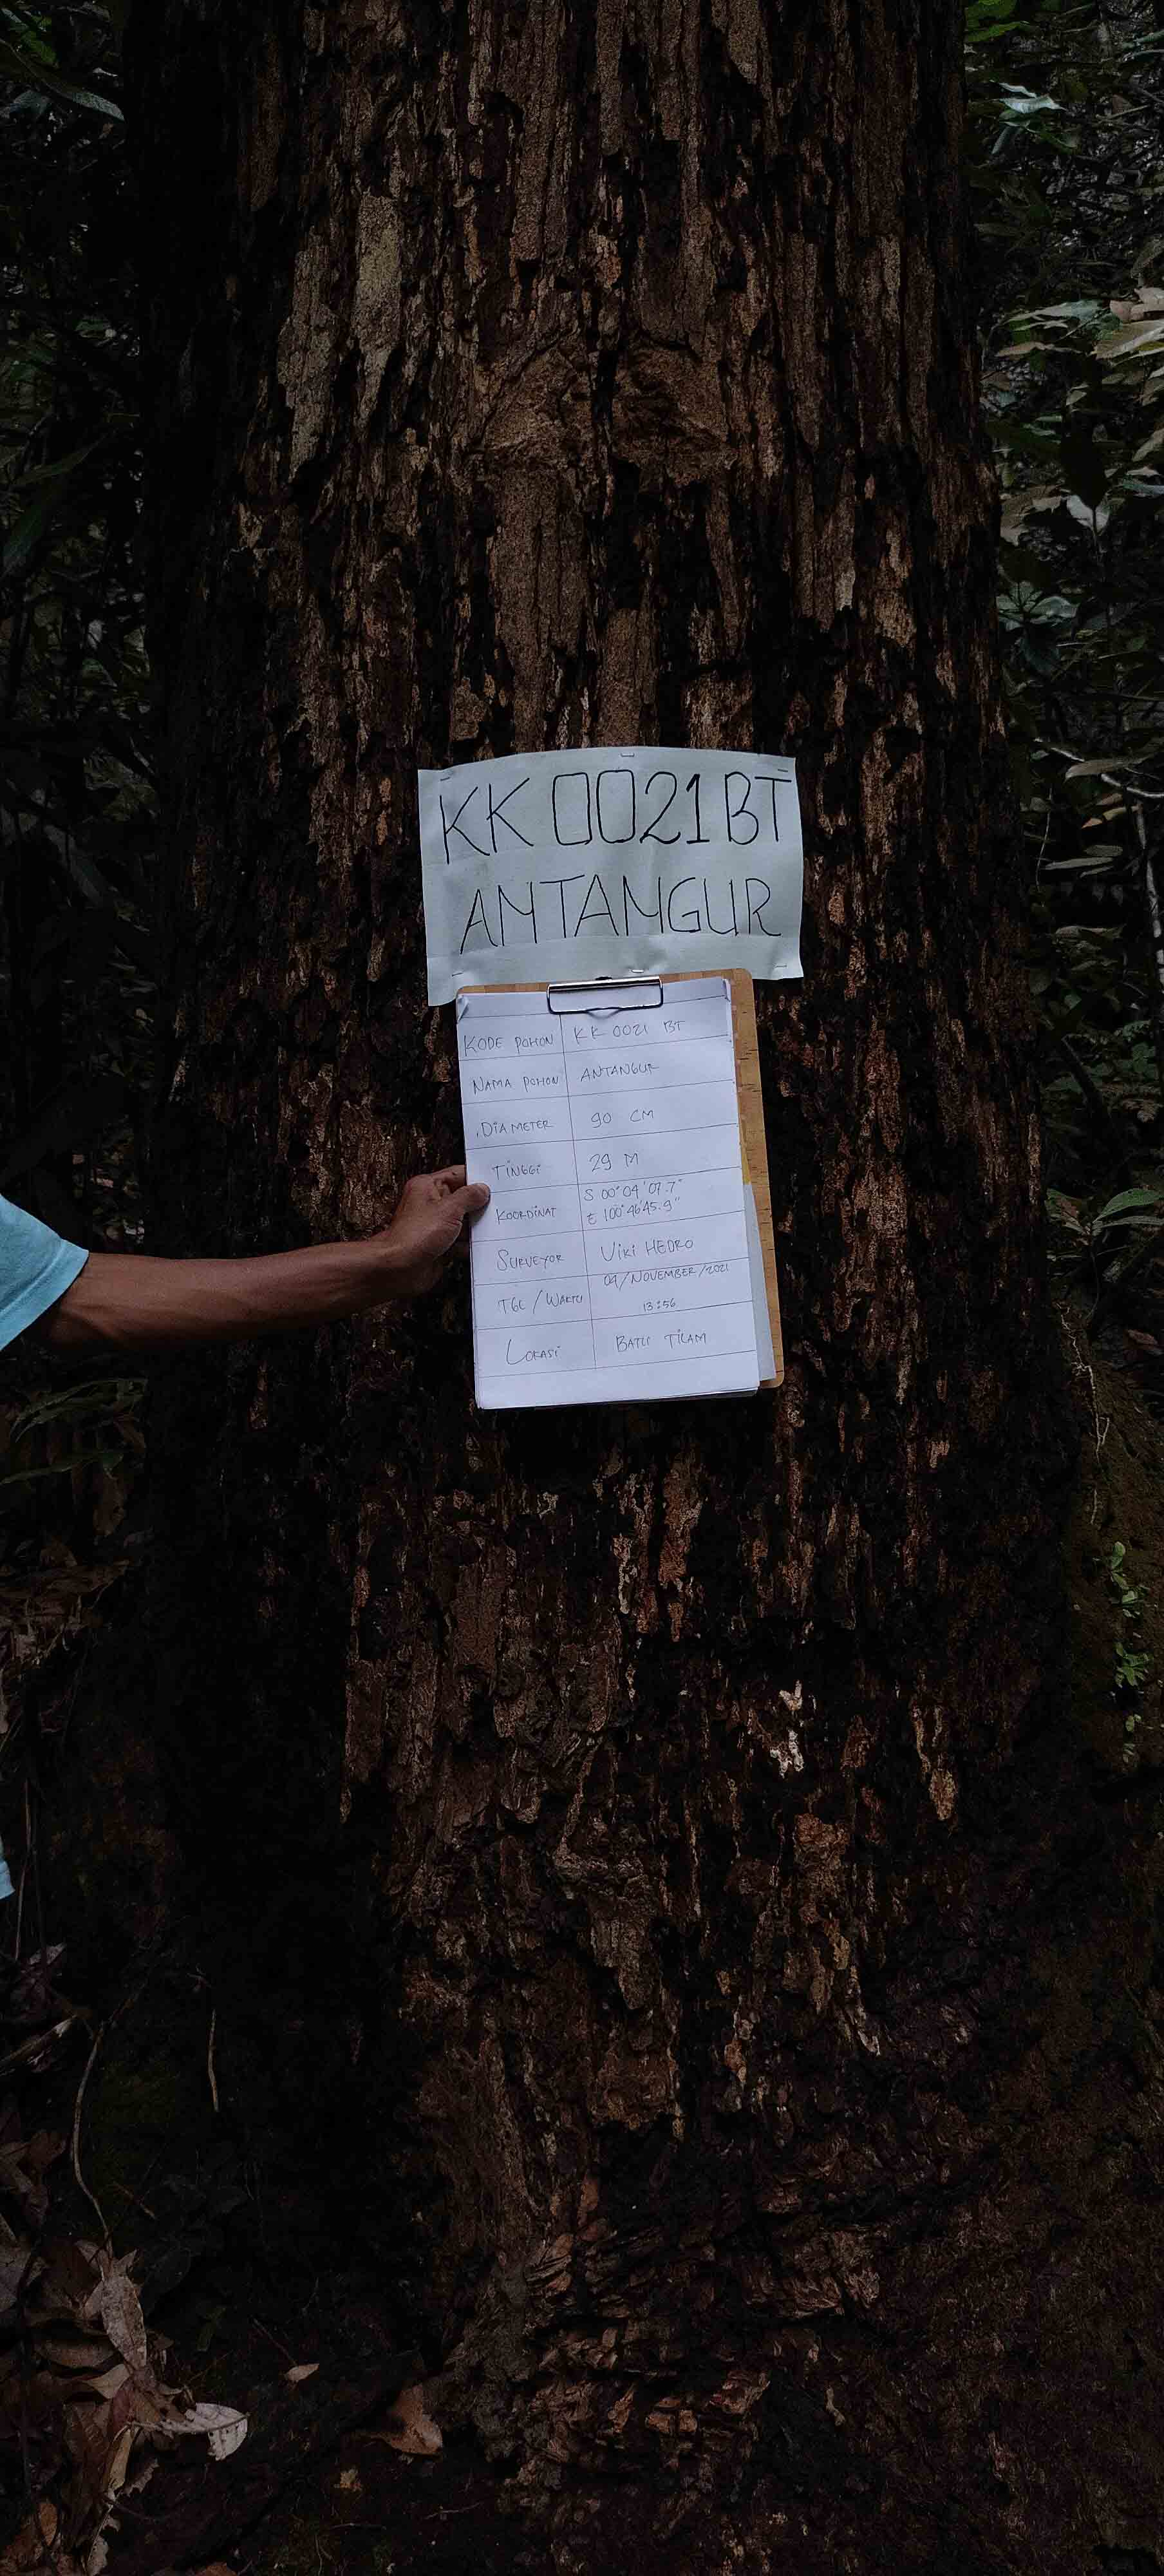 KK 0021 BT
ANTANGUR
KODE POHON KK 0021 BT
NAMA POHON ANTANGUR
DIAMETER 90 CM
TINGGI 29 M
KOORDINAT S 00°04'07.7"
E 100°46'45.9"
SURVEYOR VIKI HEDRO
TGL / WAKTU 09/NOVEMBER/2021
13:56
LOKASI BATU TILAM